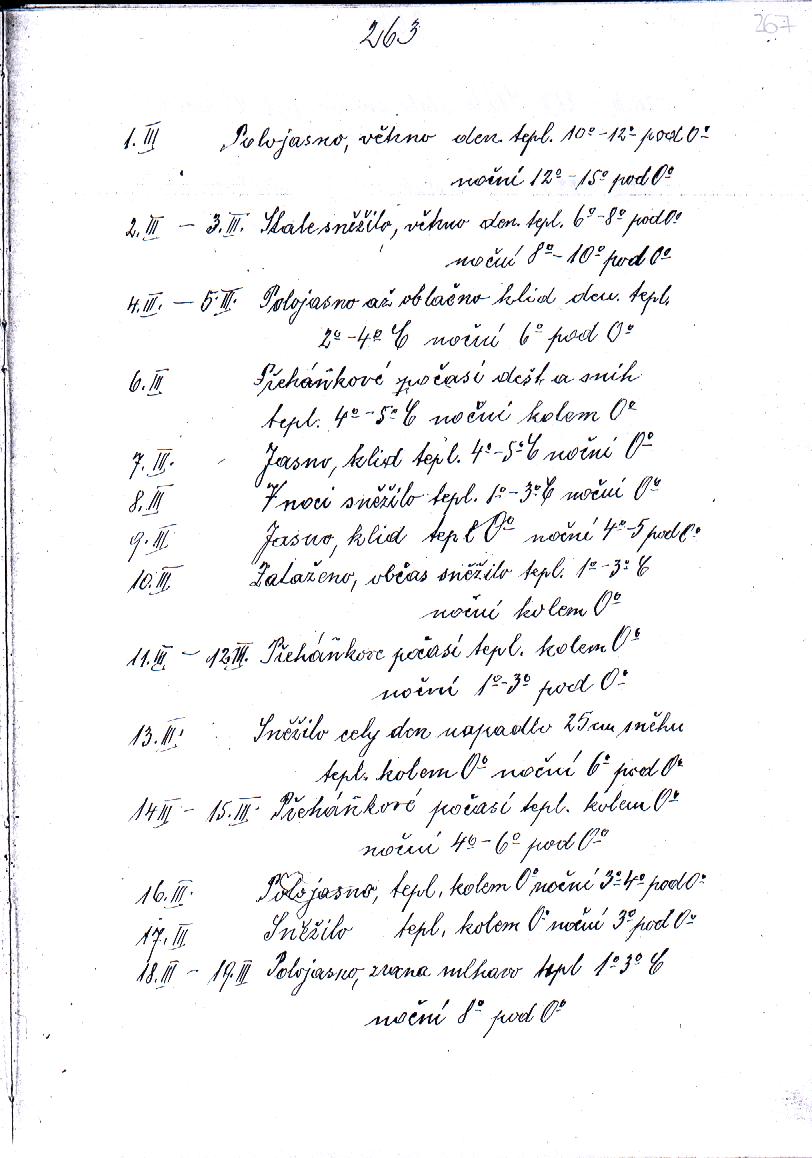 263
267
1. III Polojasno, větrno den. tepl. 10°-12° pod 0°
noční 12°-15° pod 0°
2. III - 3. III. Stale sněžilo, větrno den. tepl. 6°-8° pod 0°
noční 8°-10° pod 0°
4. III. - 5. III. Polojasno až oblačno klid den. tepl.
2°-4° C noční 6° pod 0°
6. III Přeháňkové počasí dešt a sníh
tepl. 4°-5° C noční kolem 0°
7. III. Jasno, klid tepl. 4°-5° C noční 0°
8. III V noci sněžilo tepl. 1°-3° C noční 0°
9. III Jasno, klid tepl 0° noční 4°-5 pod 0°
10. III. Zataženo, občas sněžilo tepl. 1°-3° C
noční kolem 0°
11. III. - 12. III. Přeháňkove počasí tepl. kolem 0°
noční 1°-3° pod 0°
13. III. Sněžilo cely den napadlo 25 cm sněhu
tepl. kolem 0° noční 6° pod 0°
14 III - 15. III. Přeháňkové počasí tepl. kolem 0°
noční 4°-6° pod 0°
16. III. Polojasno, tepl. kolem 0° noční 3°-4° pod 0°
17. III Sněžilo tepl. kolem 0° noční 3° pod 0°
18. III - 19. III Polojasno, zrana mlhavo tepl 1°-3° C
noční 8° pod 0°